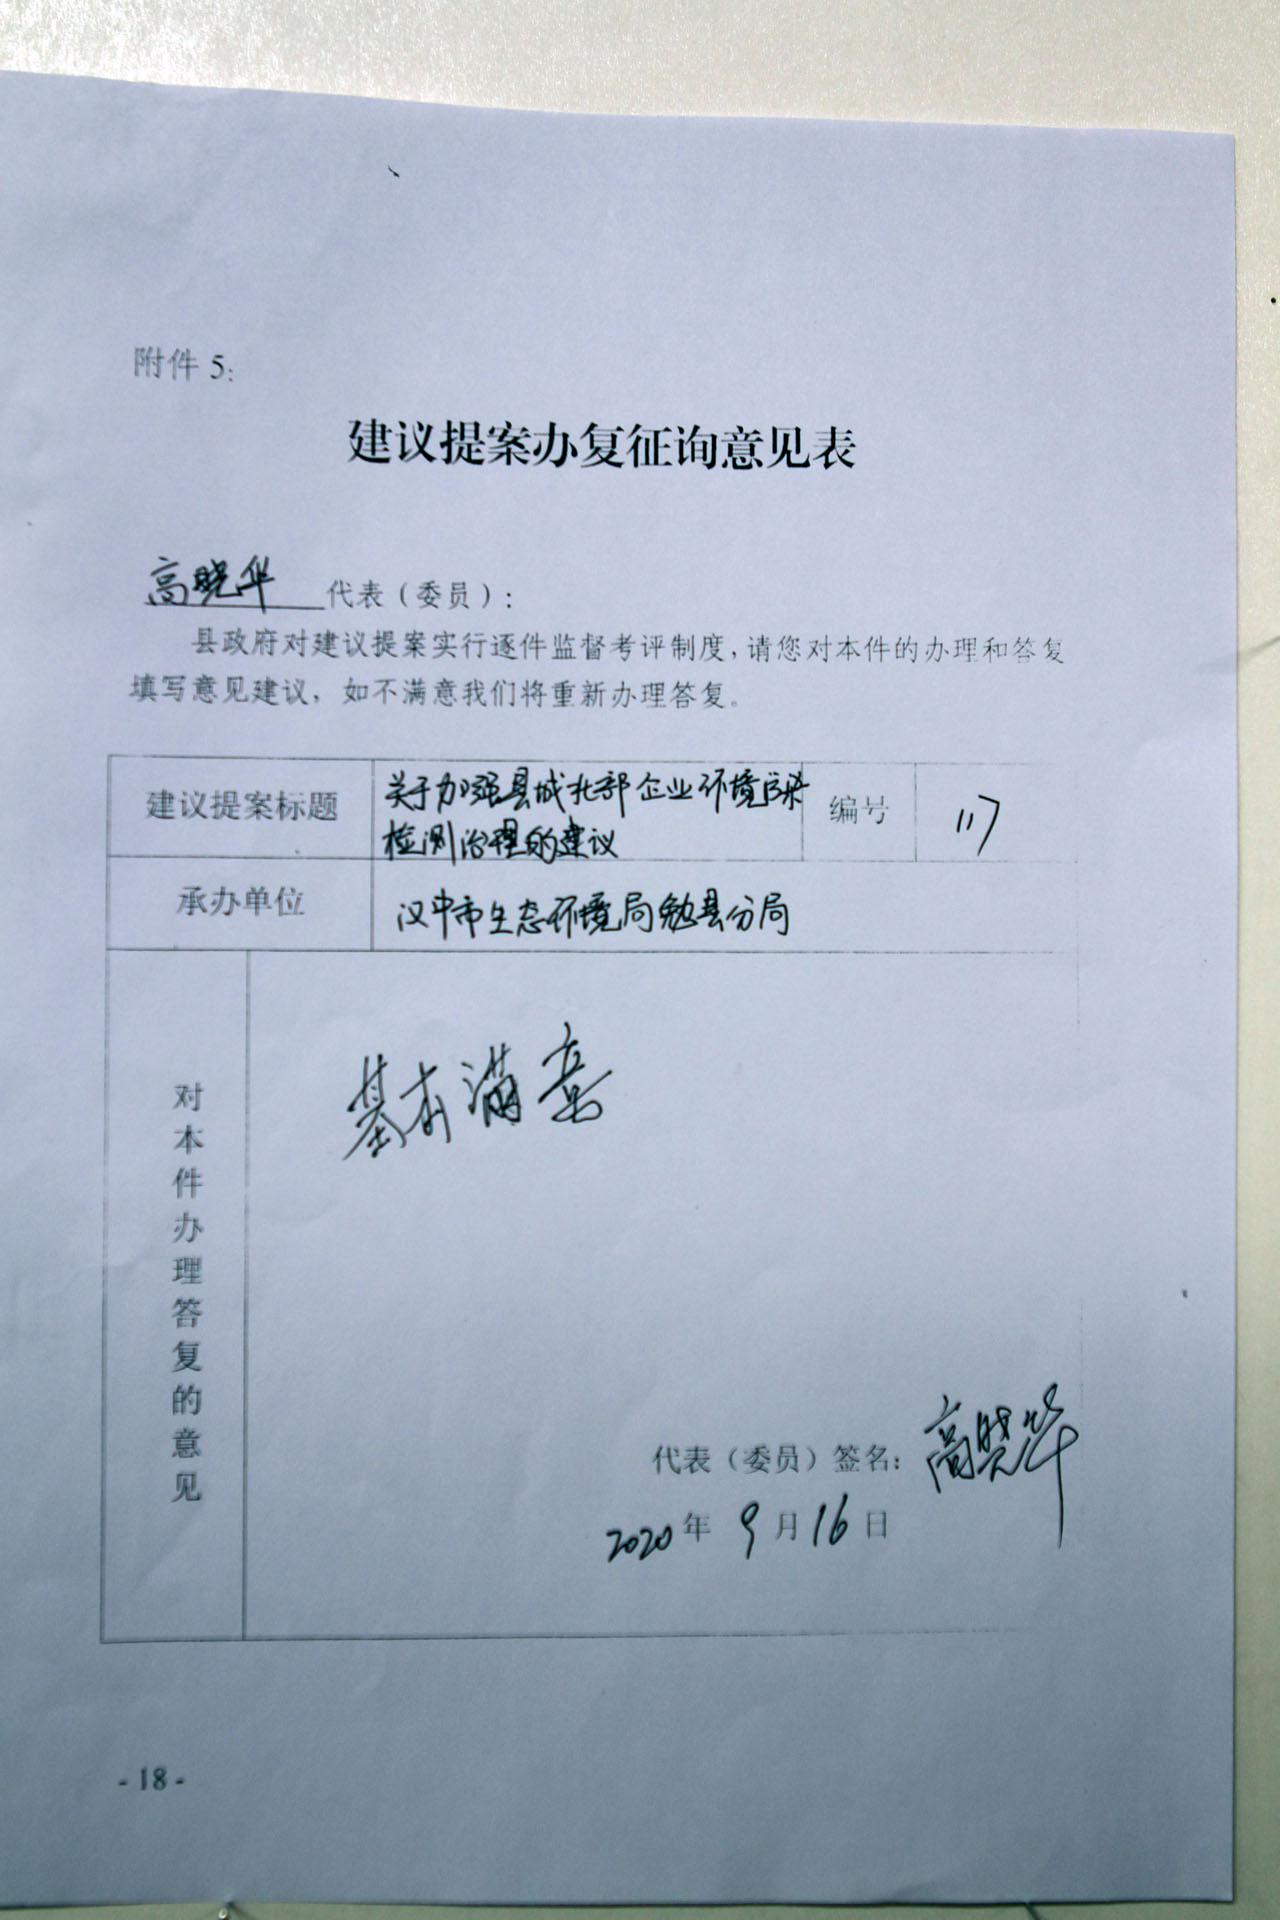 附件 5:
建议提案办复征询意见表
高晓华 代表（委员）:
县政府对建议提案实行逐件监督考评制度,请您对本件的办理和答复
填写意见建议，如不满意我们将重新办理答复。
建议提案标题
关于加强县城北部企业环境污染
检测治理的建议
编号
117
承办单位
汉中市生态环境局勉县分局
对本件办理答复的意见
基本满意
代表（委员）签名: 高晓华
2020年 9月16日
- 18 -